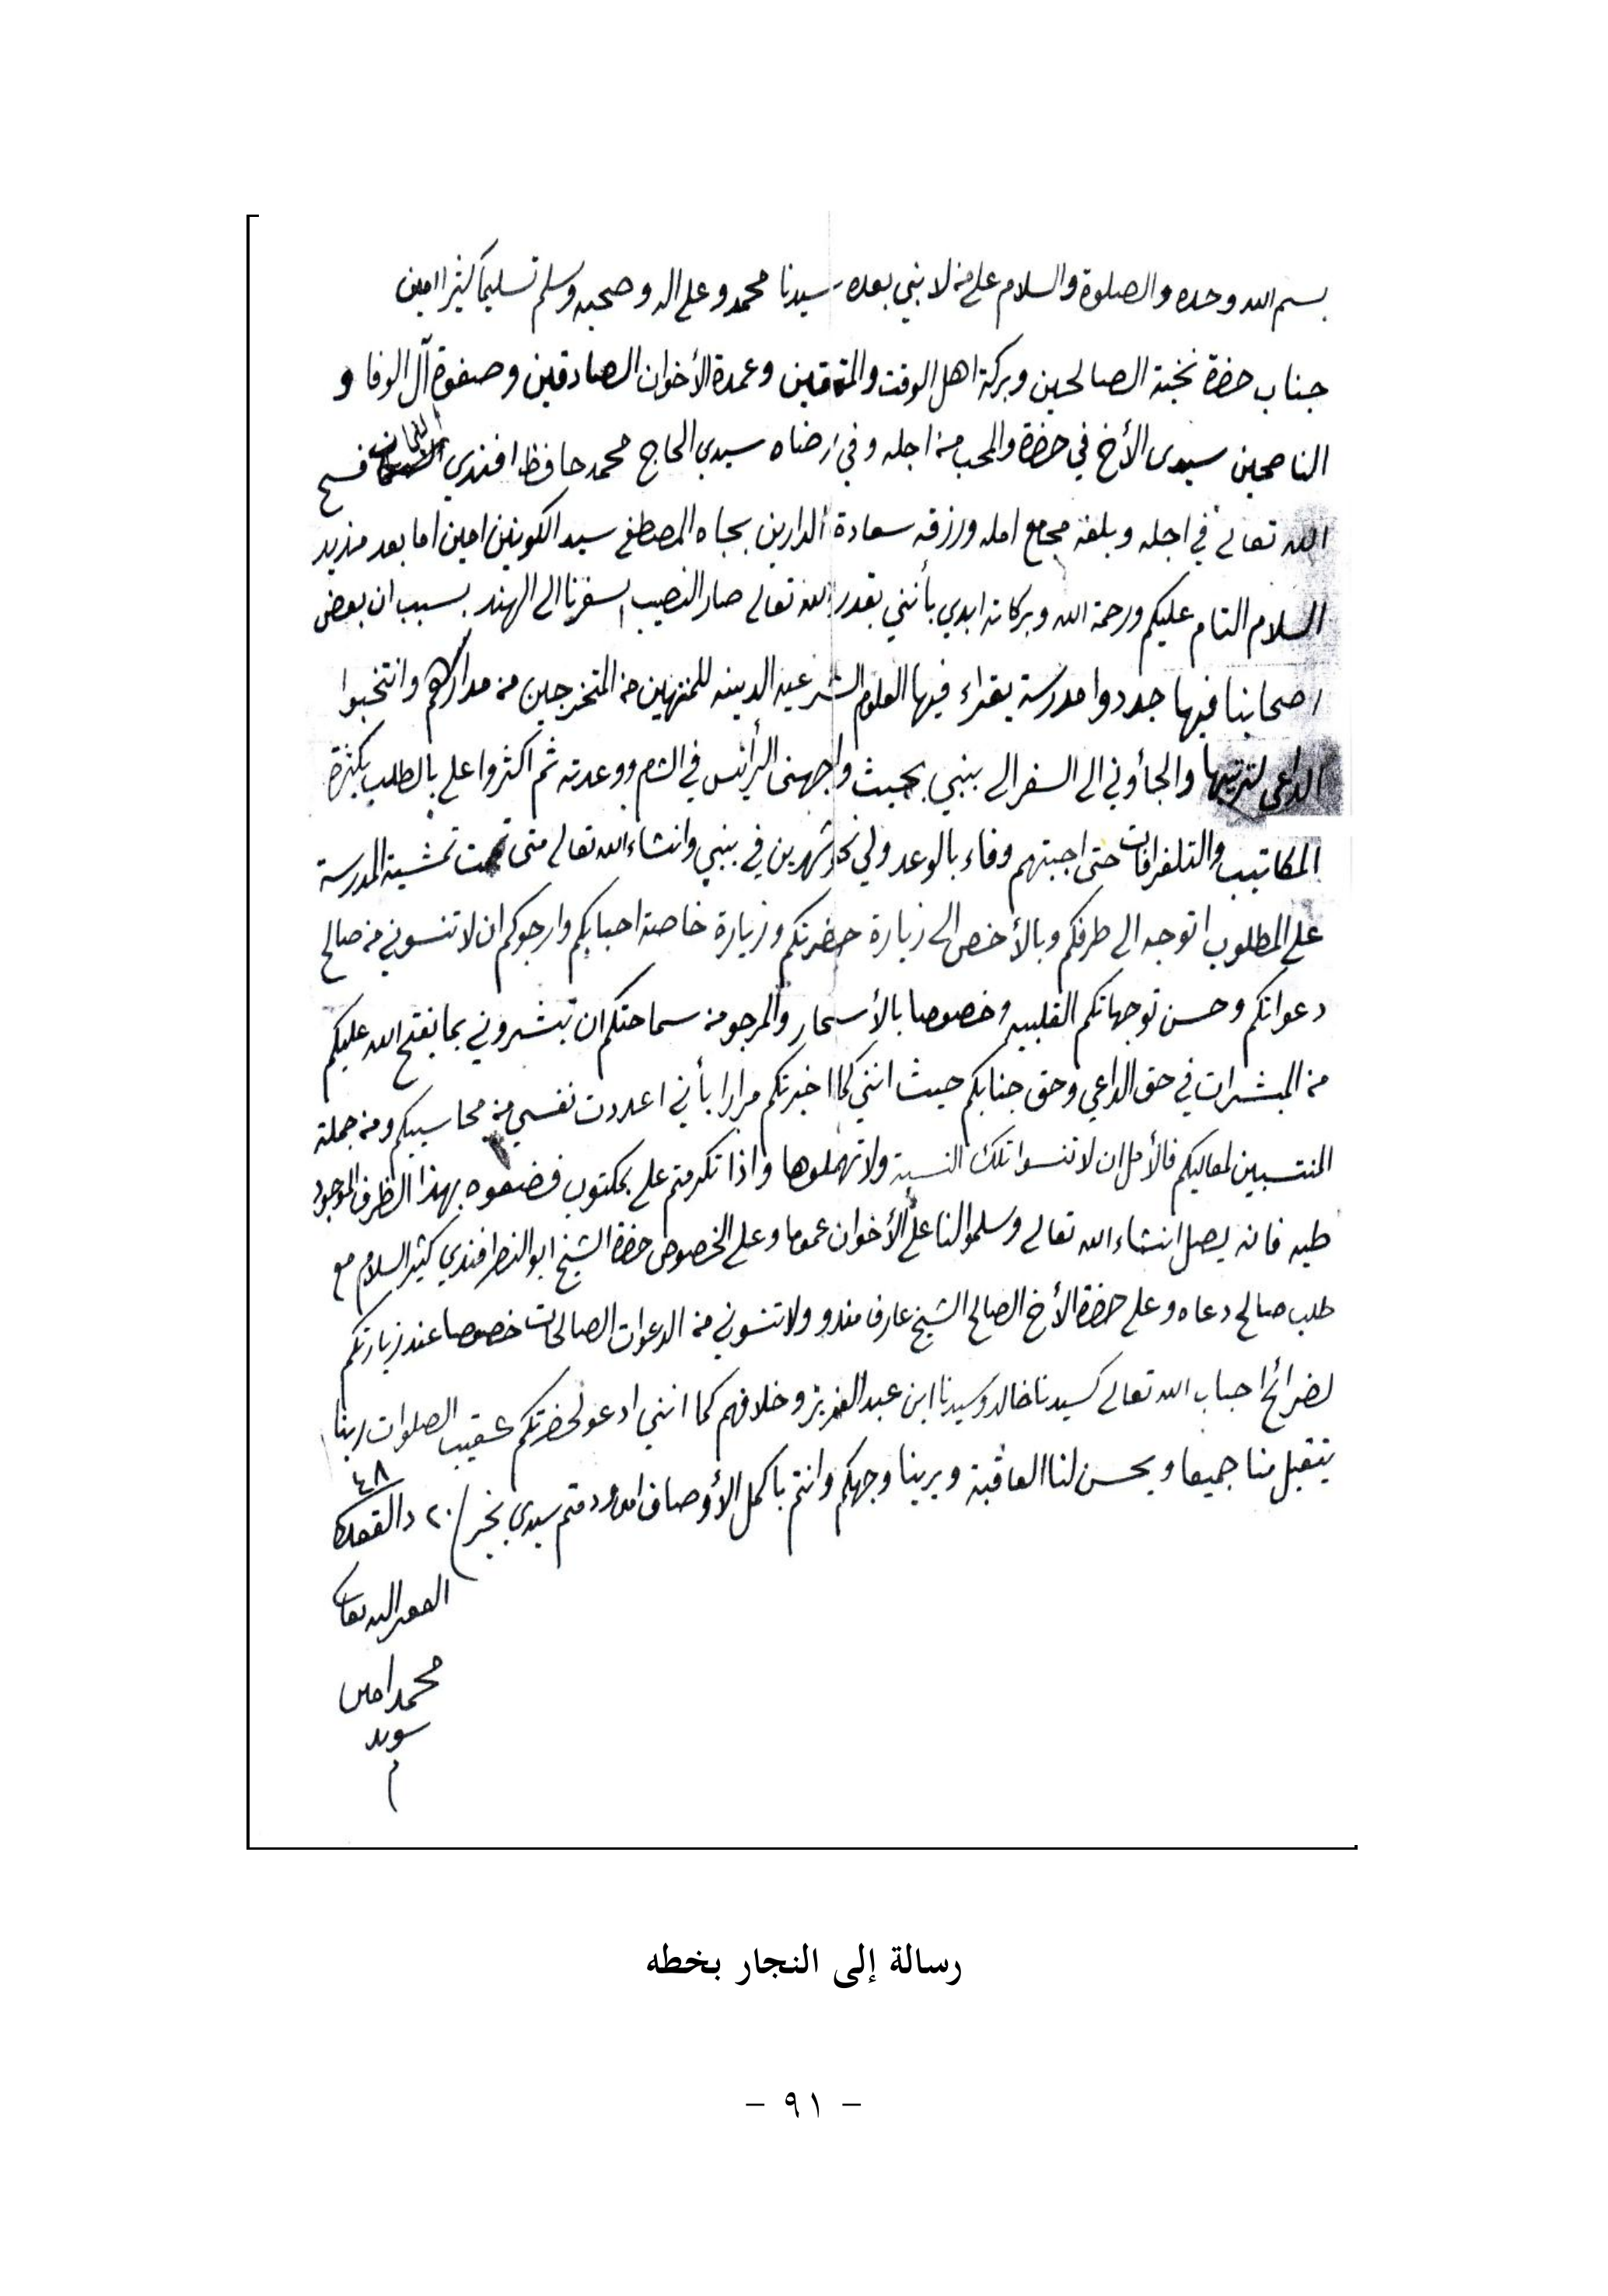 بسم الله وحده والصلوة والسلام على من لا نبي بعده سيدنا محمد وعلى اله وصحبه وسلم تسليما كثيرا امين
جناب حضرة نخبة الصالحين وبركة اهل الوقت والمتقين وعمدة الأخوان الصادقين وصفوة آل الوفا و
الناصحين سيدى الأخ في حضرة والمحب من اجله وفي رضاه سيدي الحاج محمد حافظ افندي النجار فسح
الله تعالى في اجله وبلغه مجامع امله ورزقه سعادة الدارين بجاه المصطفى سيد الكونين امين اما بعد مزيد
السلام التام عليكم ورحمة الله وبركاته ابدي بأنني بقدر الله تعالى صار النصيب لسفرنا الى الهند بسبب ان بعض
اصحابنا فيها جددوا مدرسة يقراء فيها العلوم الشرعيه الدينيه للمنتهين من المتخرجين من مدارسهم وانتخبوا
الداعي لترتيبها والجأوني الى السفر الى بنبي بحيث واجهني الرأيس في الشام ووعدته ثم اكثروا علي بالطلب بكثرة
المكاتيب والتلغرافات حتى اجبتهم وفاء بالوعد ولي نحو شهرين في بنبي وانشاء الله تعالى متى تمت تمشية المدرسة
على المطلوب اتوجه الى طرفكم وبالأخص الى زيارة حضرتكم وزيارة خاصة احبابكم وارجوكم ان لا تنسوني من صالح
دعواتكم وحسن توجهاتكم القلبيه وخصوصا بالأسحار والمرجو من سماحتكم ان تبشروني بما يفتح الله عليكم
من المبشرات في حق الداعي وحق جنابكم حيث انني كما اخبرتكم مرارا بأني اعددت نفسي من محاسيبكم ومن جملة
المنتسبين لمعاليكم فالأمل ان لا تنسوا تلك النسبة ولا تهملوها واذا تكرمتم علي بمكتوب فضعوه بهذا الظرف الموجود
طيه فانه يصل انشاء الله تعالى وسلموا لنا على الأخوان عموما وعلى الخصوص حضرة الشيخ ابو النصر افندي كثير السلام مع
طلب صالح دعاه وعلى حضرة الأخ الصالح الشيخ عارف ولا تنسوني من الدعوات الصالحات خصوصا عند زيارتكم
لضرائح احباب الله تعالى كسيدنا خالد وسيدنا ابن عبد العزيز وخلافهم كما انني ادعو لحضرتكم عقيب الصلوات ربنا
يتقبل منا جميعا ويحسن لنا العاقبة ويرينا وجهكم وانتم باكمل الأوصاف ودمتم سيدي بخير / ٢٠ ذ القعدة
٤٨
الفقير اليه تعالى
محمد امين
سويد
م
رسالة إلى النجار بخطه
– ٩١ –